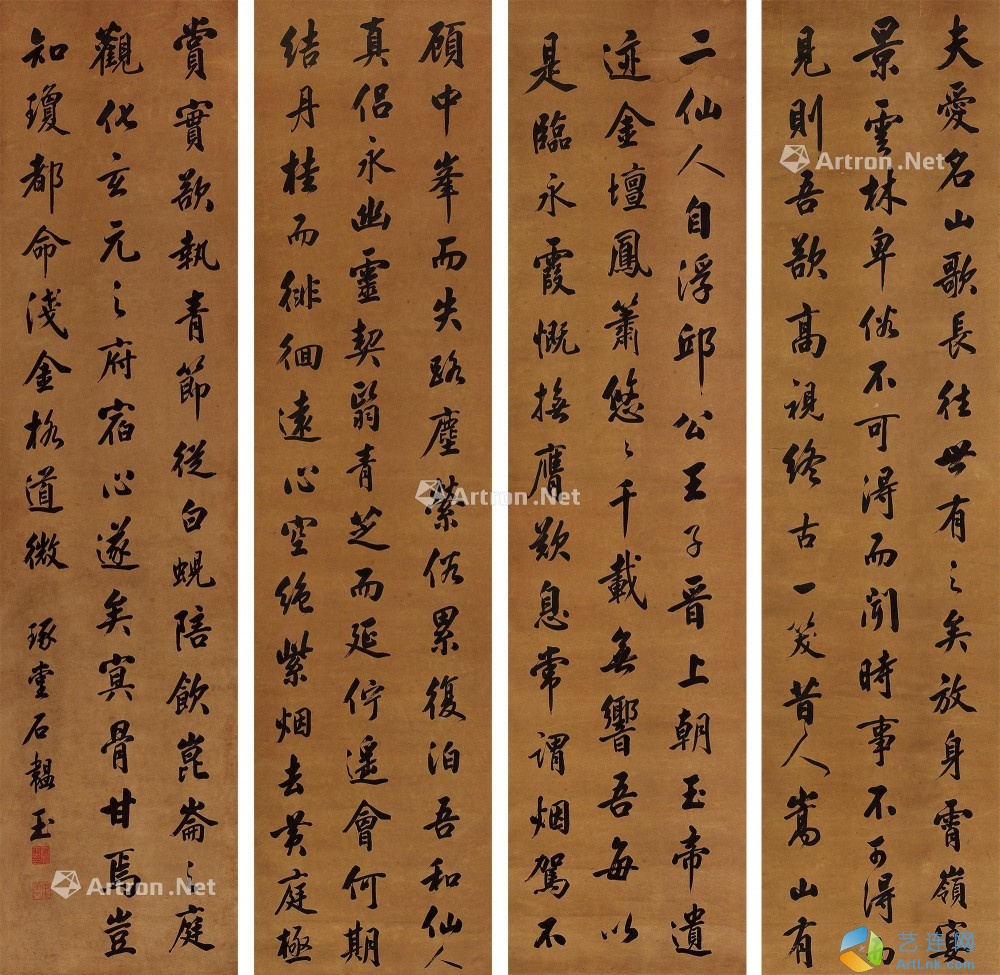 夫愛名山歌長往世有之矣放身霄嶺宴
景雲林卑俗不可得而聞時事不可得而
見則吾欲高視終古一笑昔人嵩山有
二仙人自浮邱公王子晉上朝玉帝遺
迹金壇鳳簫悠々千載無響吾每以
是臨永霞慨撫膺歎息常謂烟駕不
頋中峯而失路塵縈俗累復泊吾和仙人
真侶永幽靈契翳青芝而延佇遥會何期
結丹桂而徘徊遠心空絶紫烟去黄庭極
賞實欲執青節從白蜺陪飲崑崙之庭
觀化玄元之府宿心遂矣冥骨甘焉豈
知瓊都命淺金格道微
琢堂石韞玉
Artron.Net
Artron.Net
Artron.Net
Artron.Net
Artron.Net
艺连网
ArtLnk.com